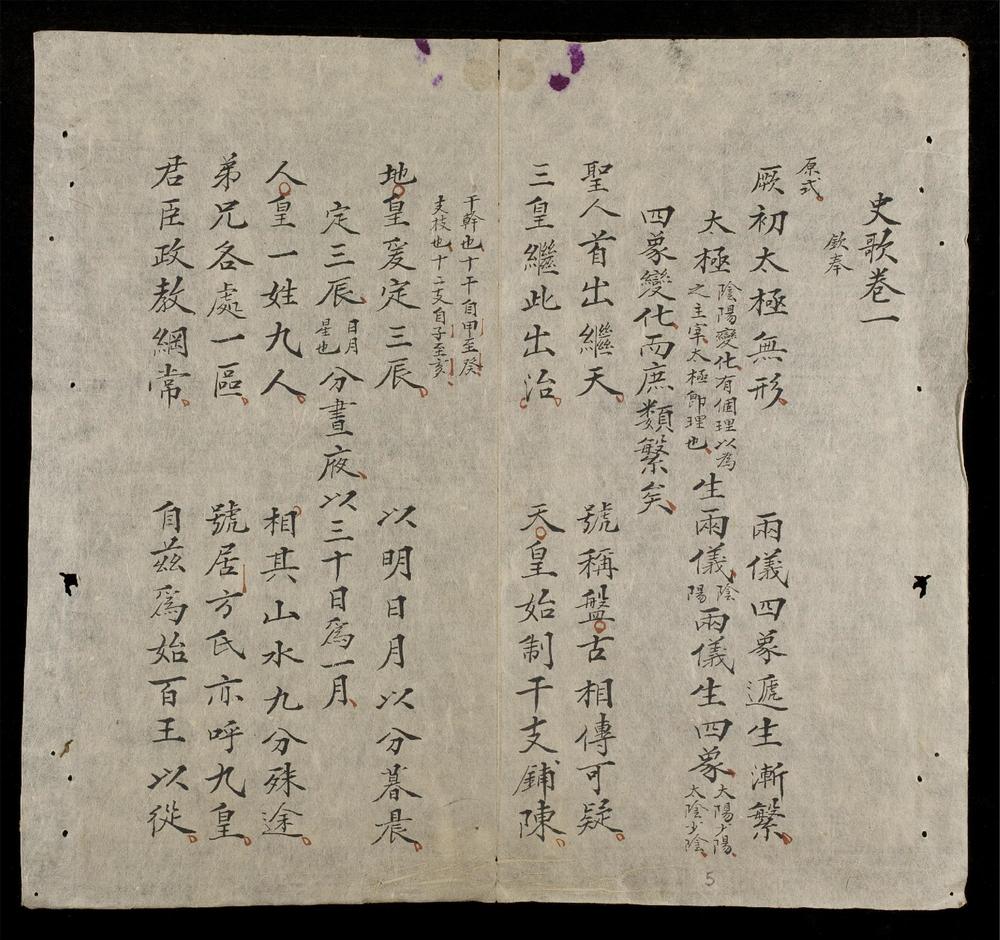 史歌卷一
欽奉
原式
厥初太極無形　兩儀四象遞生漸繁
太極陰陽變化有個理以為之主宰太極卽理也生兩儀陰陽兩儀生四象太陽少陽太陰少陰
四象變化而庶類繁矣
聖人首出繼天　號稱盤古相傳可疑
三皇繼此出治　天皇始制干支鋪陳
干幹也十干自甲至癸
支枝也十二支自子至亥
地皇爰定三辰　以明日月以分暮晨
定三辰日月星也分晝夜以三十日爲一月
人皇一姓九人　相其山水九分殊途
弟兄各處一區　號居方氏亦呼九皇
君臣政教綱常　自茲爲始百王以從
5